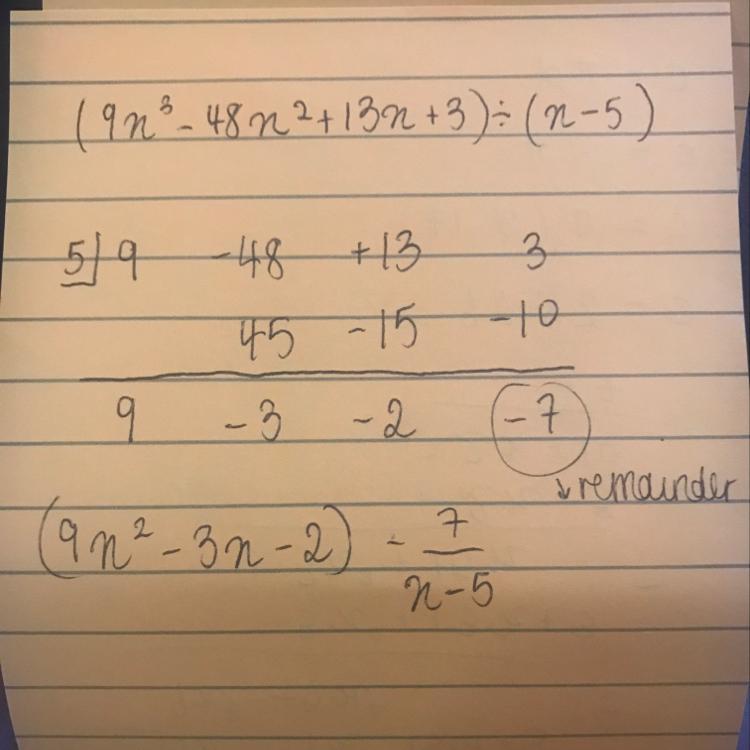 (9x³ - 48x² + 13x + 3) ÷ (x - 5)
5| 9 -48 +13 3
45 -15 -10
9 -3 -2 -7
↓ remainder
(9x² - 3x - 2) - 7/(x - 5)